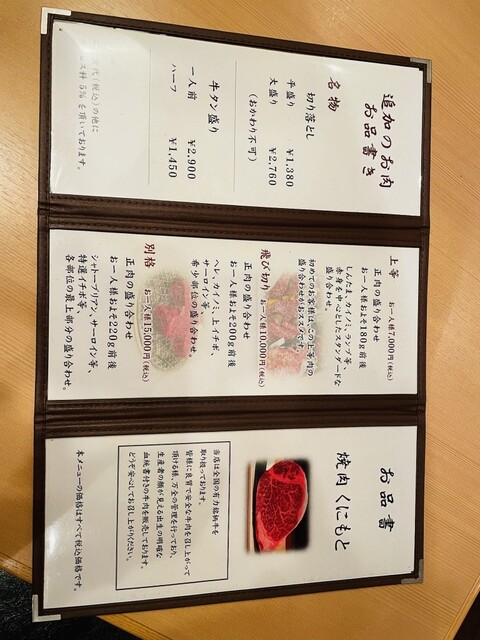 お品書
焼肉くにもと
当店は全国の有力銘柄牛を
取り扱っております。
皆様に良質で安全な牛肉を召し上がって
頂ける様、万全の管理を行っており、
生産者の顔が見える出生の明確な
血統書付きの牛肉を販売しております。
どうぞ安心してお召し上がりください。
本メニューの価格はすべて税込価格です。
上等 お一人様7,000円(税込)
正肉の盛り合わせ
お一人様およそ180g前後
しんたま、カイノミ、ランプ等、
赤身を中心としたスタンダードな
盛り合わせ。
初めてのお客様は、この上等肉の
盛り合わせがおススメです。
飛び切り お一人様10,000円(税込)
正肉の盛り合わせ
お一人様およそ200g前後
ヘレ、カイノミ、上イチボ、
サーロイン等、
希少部位の盛り合わせ。
別格 お一人様15,000円(税込)
正肉の盛り合わせ
お一人様およそ220g前後
シャトーブリアン、サーロイン等、
特選イチボ等、
各部位の最上部分の盛り合わせ。
追加のお肉
お品書き
名物
切り落とし
平盛り ¥1,380
大盛り ¥2,760
(おかわり不可)
牛タン盛り
一人前 ¥2,900
ハーフ ¥1,450
代(税込)の他に
ス料 5% を頂いております。